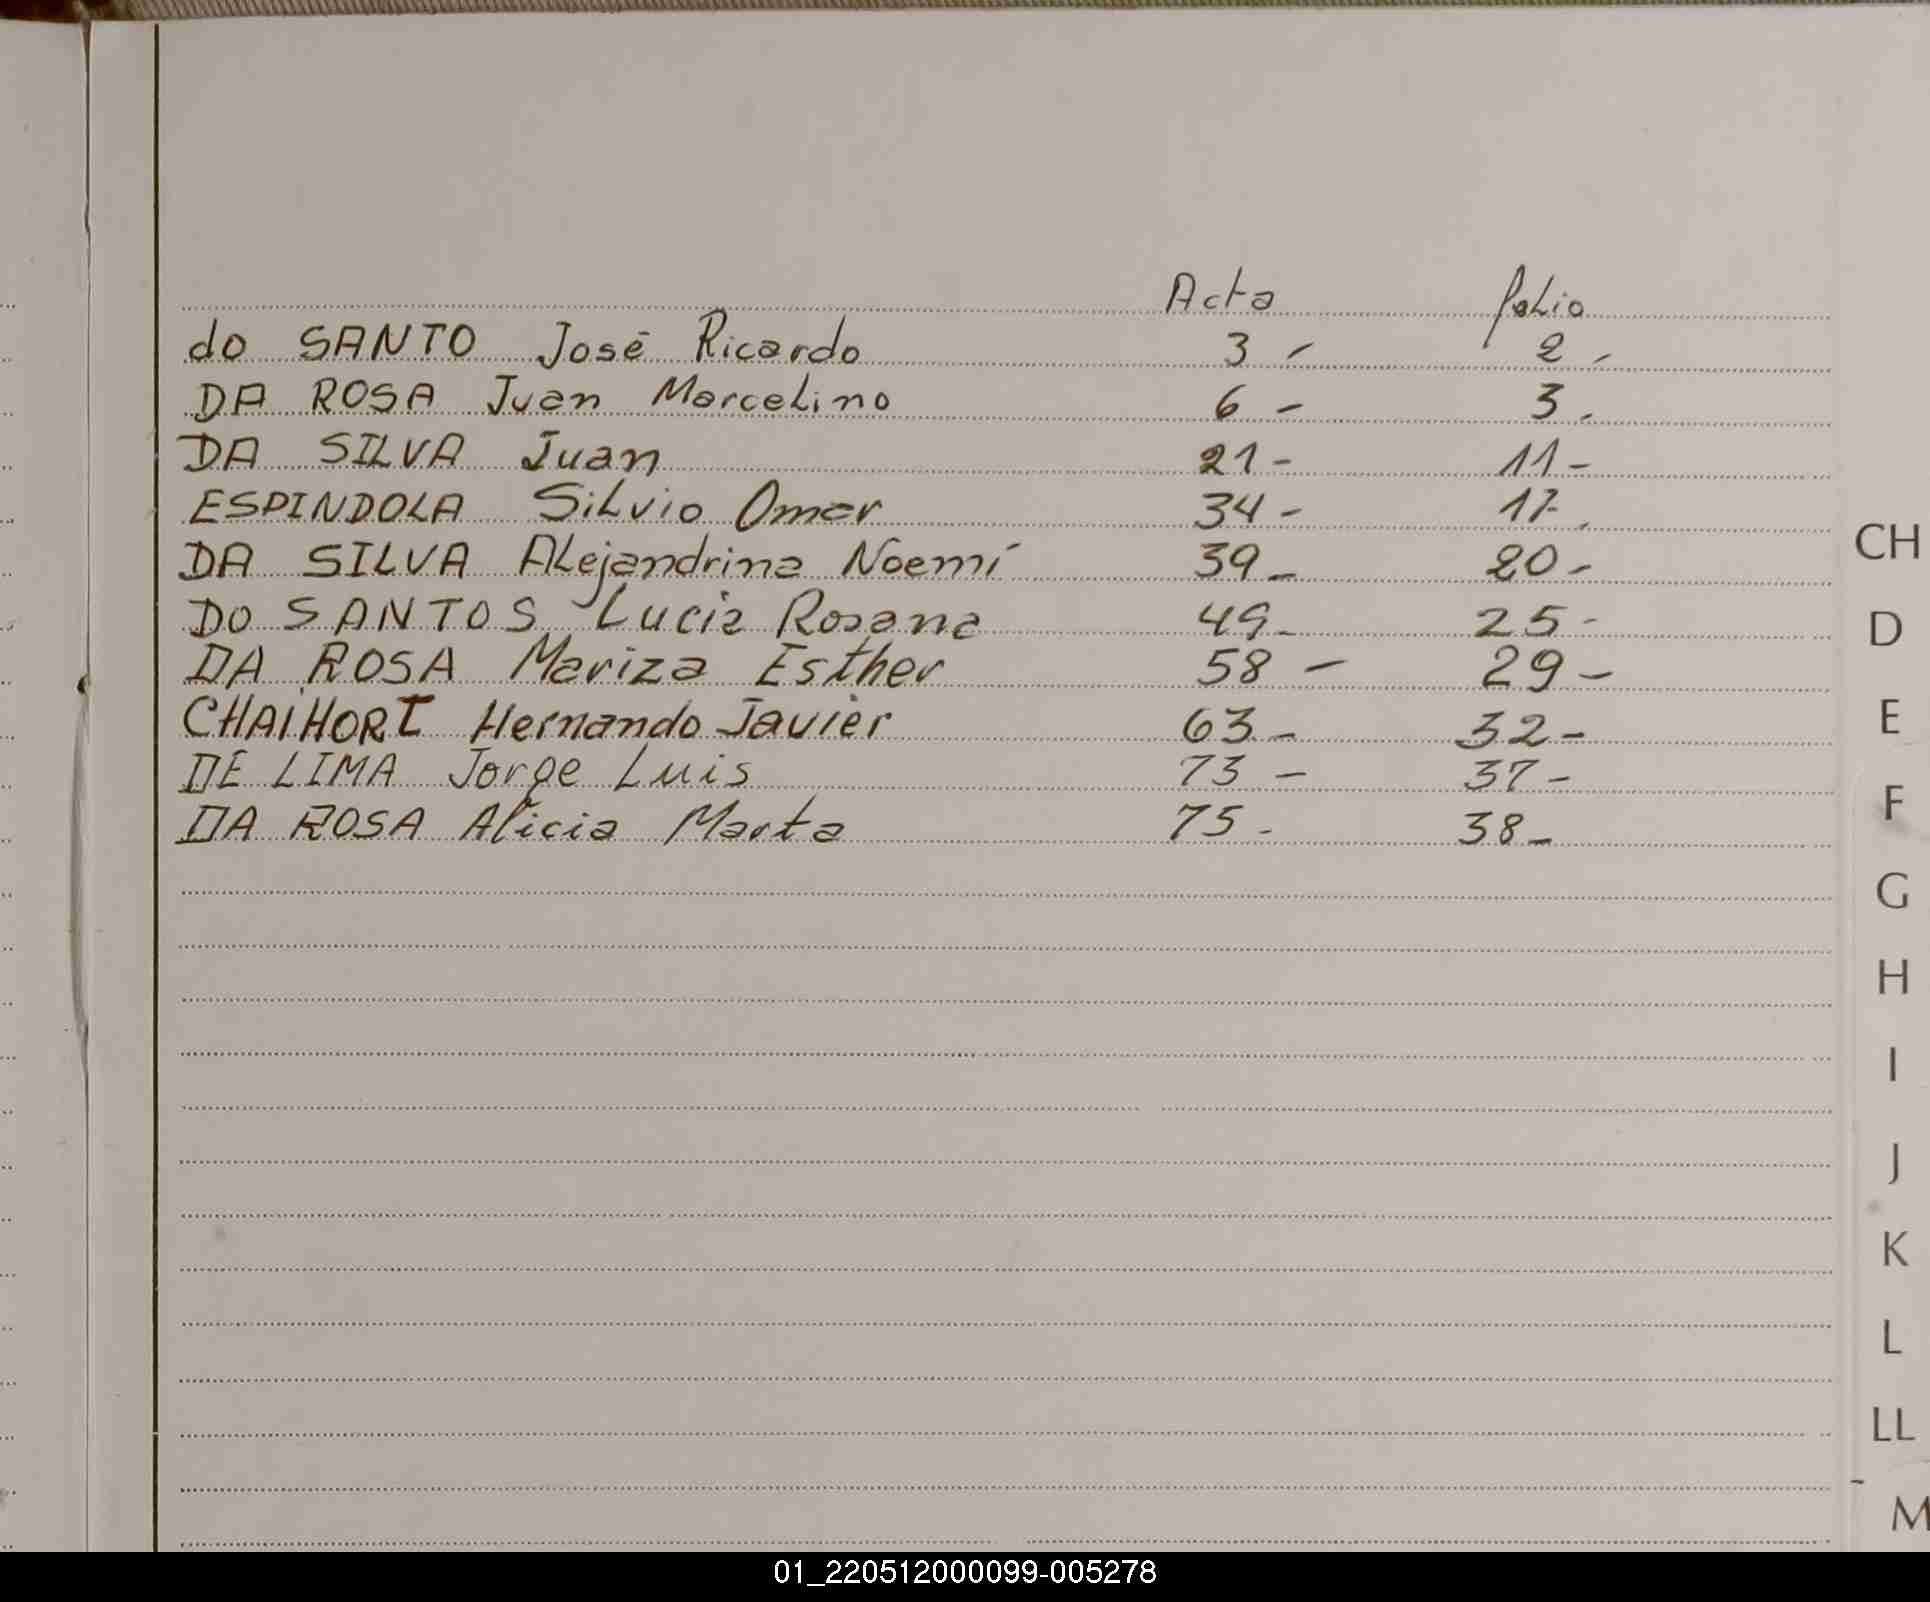 Acta folio
do SANTO José Ricardo 3 - 2 -
DA ROSA Juan Marcelino 6 - 3.
DA SILVA Juan 21 - 11 -
ESPINDOLA Silvio Omar 34 - 17.
DA SILVA Alejandrina Noemí 39 - 20 -
DO SANTOS Lucia Rosana 49 - 25 -
DA ROSA Mariza Esther 58 - 29 -
CHAIHORT Hernando Javier 63 - 32 -
DE LIMA Jorge Luis 73 - 37 -
DA ROSA Alicia Marta 75 - 38 -
CH
D
E
F
G
H
I
J
K
L
LL
M
01_220512000099-005278